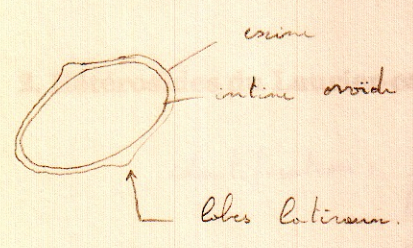 exine
intine ovoïde
lobes latéraux.